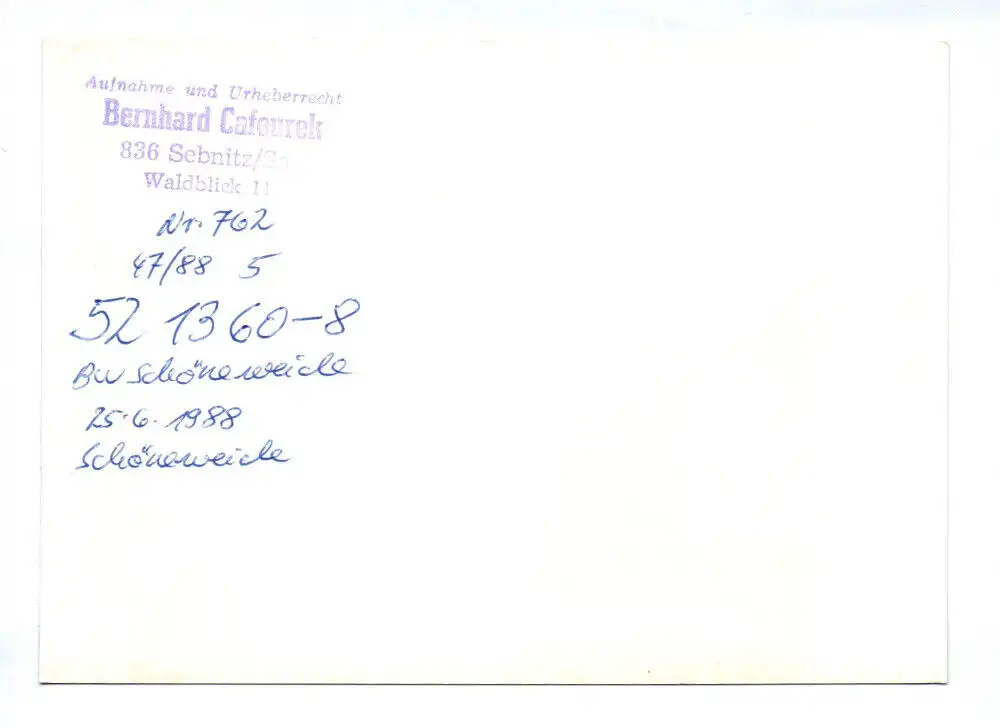 Aufnahme und Urheberrecht
Bernhard Cafourek
836 Sebnitz/Sa
Waldblick 11
Nr. 762
47/88 5
52 1360-8
BW Schöneweide
25.6.1988
Schöneweide